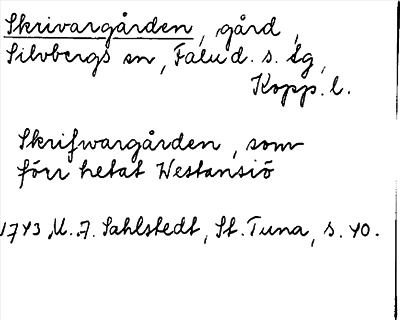 Skrivargården, gård,
Silvbergs sn, Falu d. s. lg,
Kopp. l.
Skrifwargården, som
förr hetat Westansiö
1743 M. F. Sahlstedt, St. Tuna, s. 40.